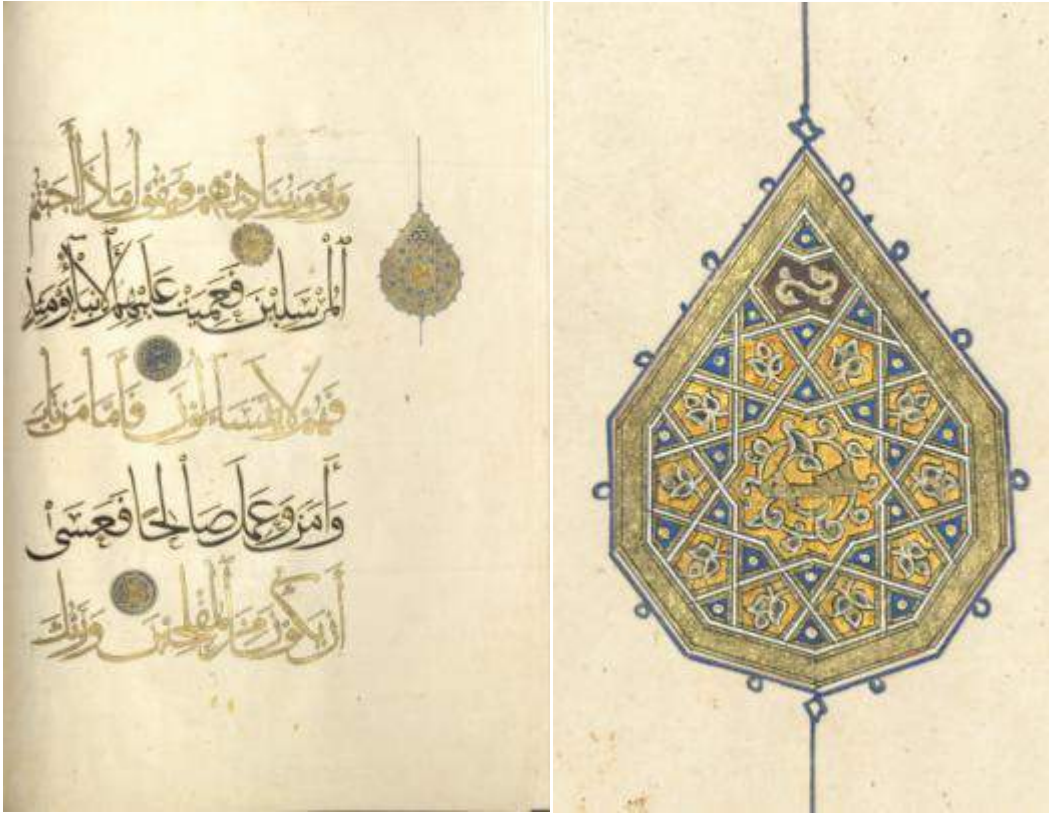 وَيَوْمَ يُنَادِيهِمْ فَيَقُولُ مَاذَا أَجَبْتُمُ
الْمُرْسَلِينَ فَعَمِيَتْ عَلَيْهِمُ الْأَنْبَاءُ يَوْمَئِذٍ
فَهُمْ لَا يَتَسَاءَلُونَ فَأَمَّا مَنْ تَابَ
وَآمَنَ وَعَمِلَ صَالِحًا فَعَسَى
أَنْ يَكُونَ مِنَ الْمُفْلِحِينَ وَرَبُّكَ